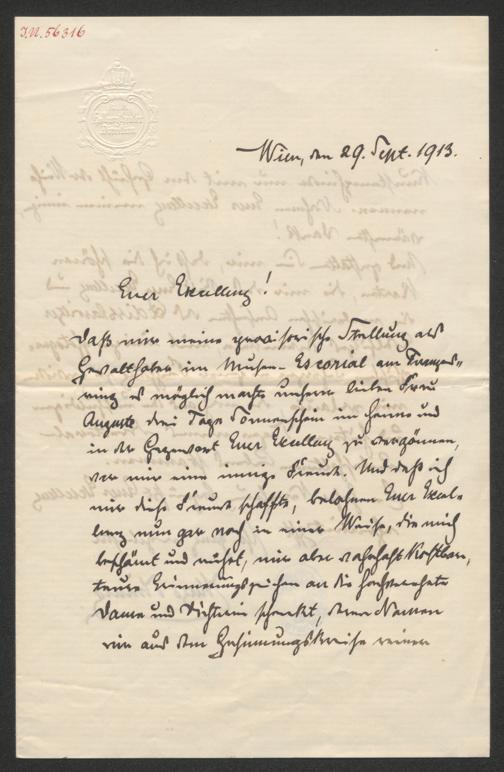 I.N. 56316
Wien, den 29. Sept. 1913.
Euer Excellenz!
Daß mir meine provisorische Stellung als
Gewalthaber im Musen-Escorial am Franzens-
ring es möglich machte unserer lieben Frau
Auguste drei Tage Sonnenschein im Heime und
in der Gegenwart Euer Excellenz zu vergönnen,
war mir eine innige Freude. Und daß ich
mir diese Freude schaffte, belohnen Euer Excel-
lenz nun gar noch in einer Weise, die mich
beschämt und rührt, mir aber wahrhaft kostbare,
teure Erinnerungszeichen an die hochverehrte
Dame und Dichterin schenkt, deren Namen
wir aus dem Gesinnungskreise reiner